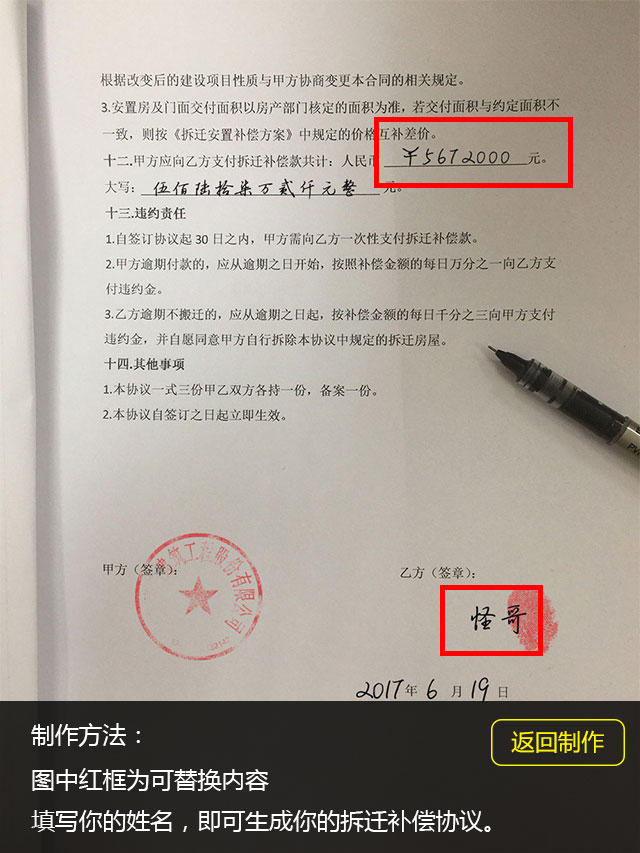 根据改变后的建设项目性质与甲方协商变更本合同的相关规定。
3.安置房及门面交付面积以房产部门核定的面积为准，若交付面积与约定面积不
一致，则按《拆迁安置补偿方案》中规定的价格互补差价。
十二.甲方应向乙方支付拆迁补偿款共计：人民币 ￥5672000 元。
大写：伍佰陆拾柒万贰仟元整 元。
十三.违约责任
1.自签订协议起 30 日之内，甲方需向乙方一次性支付拆迁补偿款。
2.甲方逾期付款的，应从逾期之日开始，按照补偿金额的每日万分之一向乙方支
付违约金。
3.乙方逾期不搬迁的，应从逾期之日起，按补偿金额的每日千分之三向甲方支付
违约金，并自愿同意甲方自行拆除本协议中规定的拆迁房屋。
十四.其他事项
1.本协议一式三份甲乙双方各持一份，备案一份。
2.本协议自签订之日起立即生效。
甲方（签章）：
建筑工程股份有限公司
乙方（签章）：
怪哥
2017 年 6 月 19 日
制作方法：
返回制作
图中红框为可替换内容
填写你的姓名，即可生成你的拆迁补偿协议。